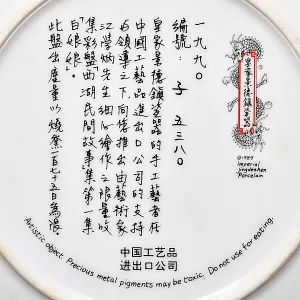 一九九〇
編號：子 五三八〇
皇家景德鎮瓷器的手工藝者在
中國工藝品進出口公司的支持
与領導之下，向僑推出由藝術家
江營炳先生細心繪作之限量收
集彩盤西湖民間故事集第一集
白娘娘。
此盤出產量以燒窯一百七十五日為準。
皇家景德鎮瓷器
©1989
Imperial
Jingdezhen
Porcelain
中国工艺品
进出口公司
Artistic object. Precious metal pigments may be toxic. Do not use for eating.